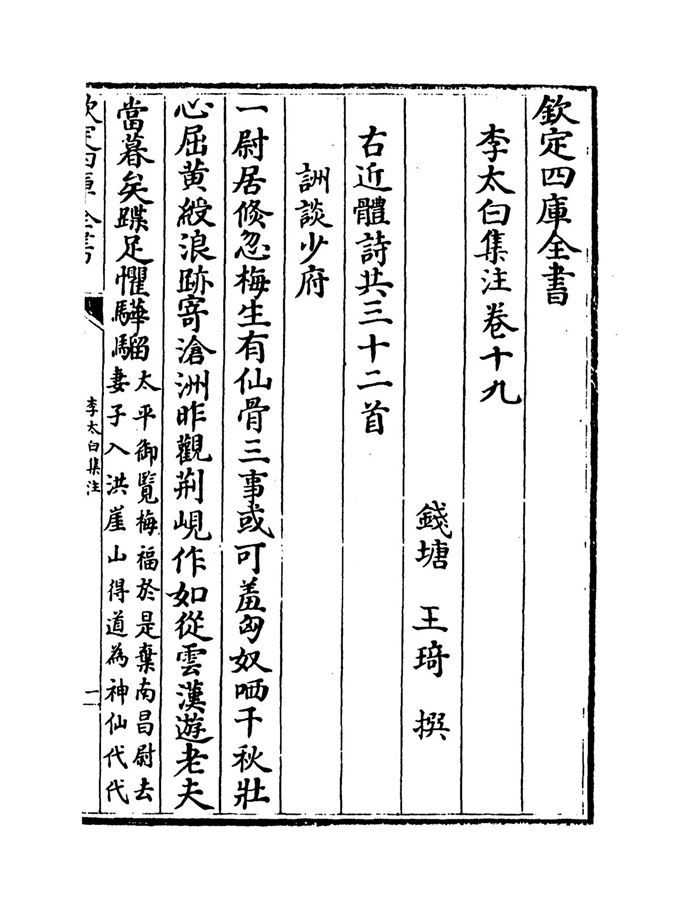 欽定四庫全書
李太白集注卷十九
錢塘 王琦 撰
右近體詩共三十二首
詶談少府
一尉居倐忽梅生有仙骨三事或可羞匈奴哂千秋壯
心屈黄綬浪跡寄滄洲昨觀荆峴作如從雲漢遊老夫
當暮矣蹀足懼驊騮
太平御覽梅福於是棄南昌尉去
妻子入洪崖山得道為神仙代代
欽定四庫全書
李太白集注
一